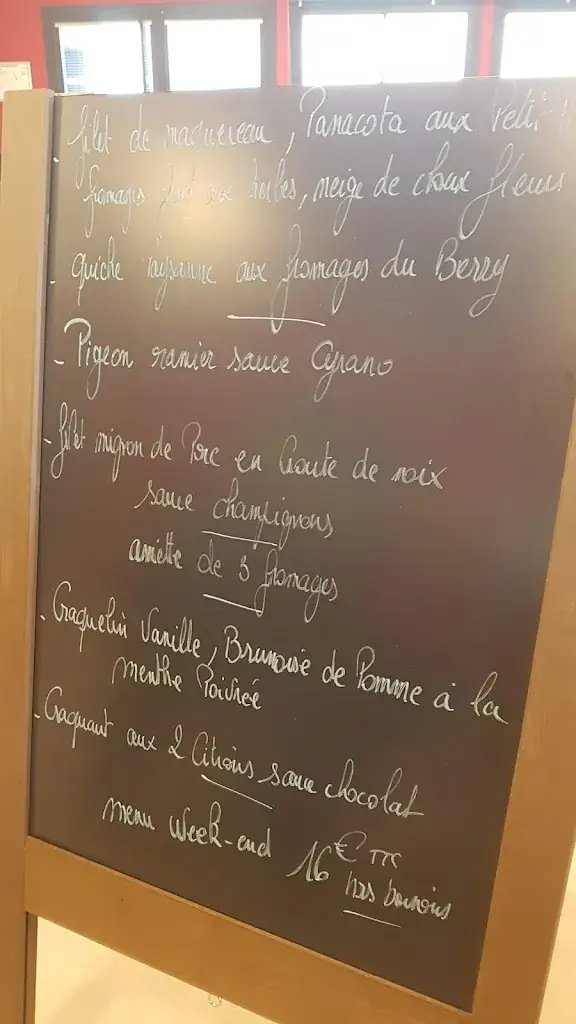 - filet de maquereau, Panacota aux Petit
fromages aux herbes, neige de choux fleurs
- quiche Paysanne aux fromages du Berry
- Pigeon ramier sauce Cyrano
- filet mignon de Porc en Croute de noix
sauce champignons
assiette de 3 fromages
- Craquelin Vanille, Brunoise de Pomme à la
menthe Poivrée
- Craquant aux 2 Citrons sauce chocolat
menu week-end 16 € TTC
hors boissons